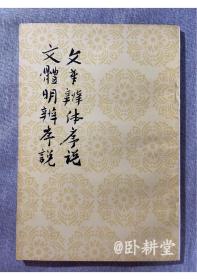 文章辨体序说
文體明辨序說
@卧耕堂